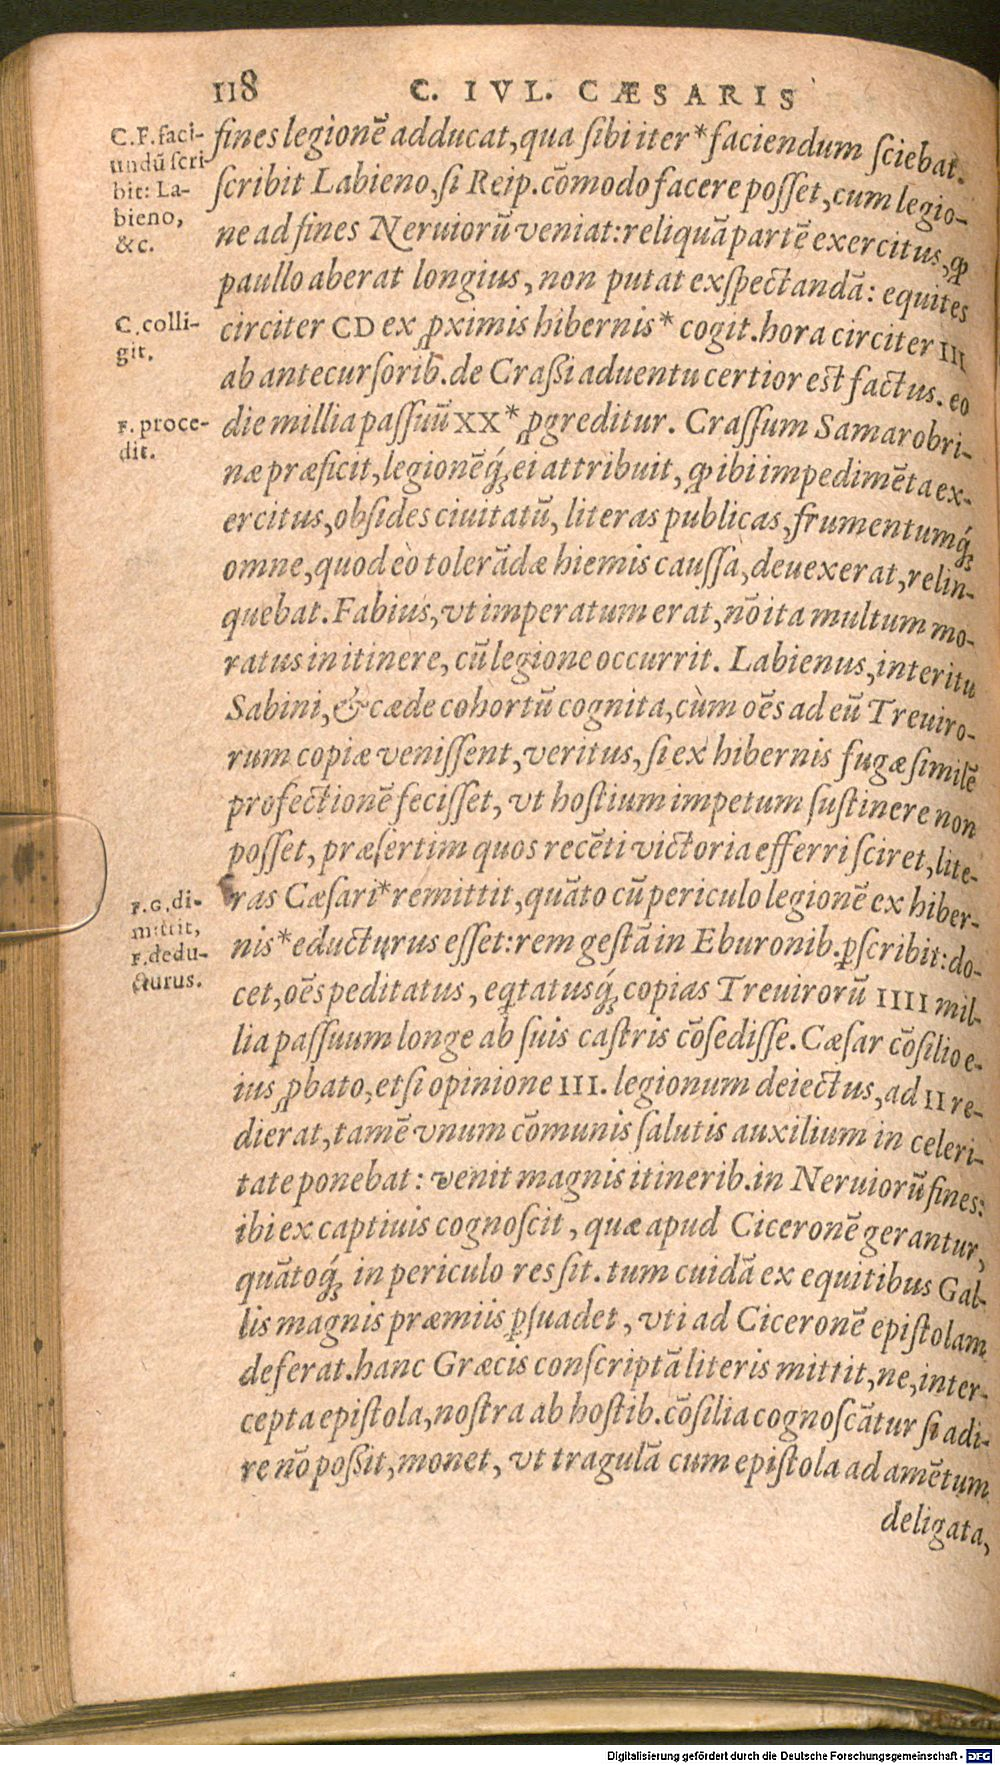 118 C. IVL. CÆSARIS
C.F. faci-
undũ scri
bit: La-
bieno,
&c.
C. colli-
git.
F. proce-
dit.
F.G. di-
mittit,
F. dedu-
cturus.
fines legionẽ adducat, qua sibi iter * faciendum sciebat.
scribit Labieno, si Reip. cõmodo facere posset, cum legio-
ne ad fines Neruiorũ veniat: reliquã partẽ exercitus, ꝙ
paullo aberat longius, non putat exspectandã: equites
circiter CD ex ꝓximis hibernis * cogit. hora circiter III
ab antecursorib. de Crassi aduentu certior est factus. eo
die millia passuũ XX * ꝓgreditur. Crassum Samarobri-
næ præficit, legionẽq́; ei attribuit, ꝙ ibi impedimẽta ex-
ercitus, obsides ciuitatũ, literas publicas, frumentumq́;
omne, quod eò tolerãdæ hiemis caussa, deuexerat, relin-
quebat. Fabius, vt imperatum erat, nõ ita multum mo-
ratus in itinere, cũ legione occurrit. Labienus, interitu
Sabini, & cæde cohortũ cognita, cùm oẽs ad eũ Treuiro-
rum copiæ venissent, veritus, si ex hibernis fugæ similẽ
profectionẽ fecisset, vt hostium impetum sustinere non
posset, præsertim quos recẽti victoria efferri sciret, lite-
ras Cæsari * remittit, quãto cũ periculo legionẽ ex hiber-
nis * educturus esset: rem gestã in Eburonib. ꝑscribit: do-
cet, oẽs peditatus, eqtatusq́; copias Treuirorũ IIII mil-
lia passuum longe ab suis castris cõsedisse. Cæsar cõsilio e-
ius ꝓbato, etsi opinione III. legionum deiectus, ad II re-
dierat, tamẽ vnum cõmunis salutis auxilium in celeri-
tate ponebat: venit magnis itinerib. in Neruiorũ fines:
ibi ex captiuis cognoscit, quæ apud Ciceronẽ gerantur,
quãtoq́; in periculo res sit. tum cuidã ex equitibus Gal-
lis magnis præmiis ꝑsuadet, vti ad Ciceronẽ epistolam
deferat. hanc Græcis conscriptã literis mittit, ne, inter-
cepta epistola, nostra ab hostib. cõsilia cognoscãtur si adi-
re nõ possit, monet, vt tragulã cum epistola ad amẽtum
deligata,
Digitalisierung gefördert durch die Deutsche Forschungsgemeinschaft - DFG